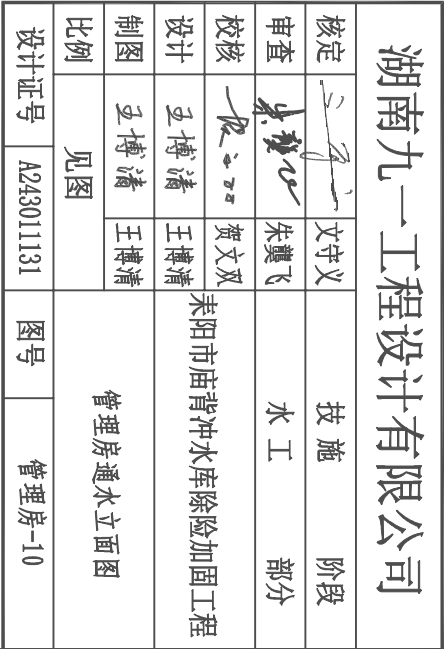 湖南九一工程设计有限公司
核定 文守义 技施 阶段
审查 朱龚飞 水工 部分
校核 贺文双 耒阳市庙背冲水库除险加固工程
设计 王博清 王博清
制图 王博清 王博清 管理房通水立面图
比例 见图
设计证号 A243011131 图号 管理房-10